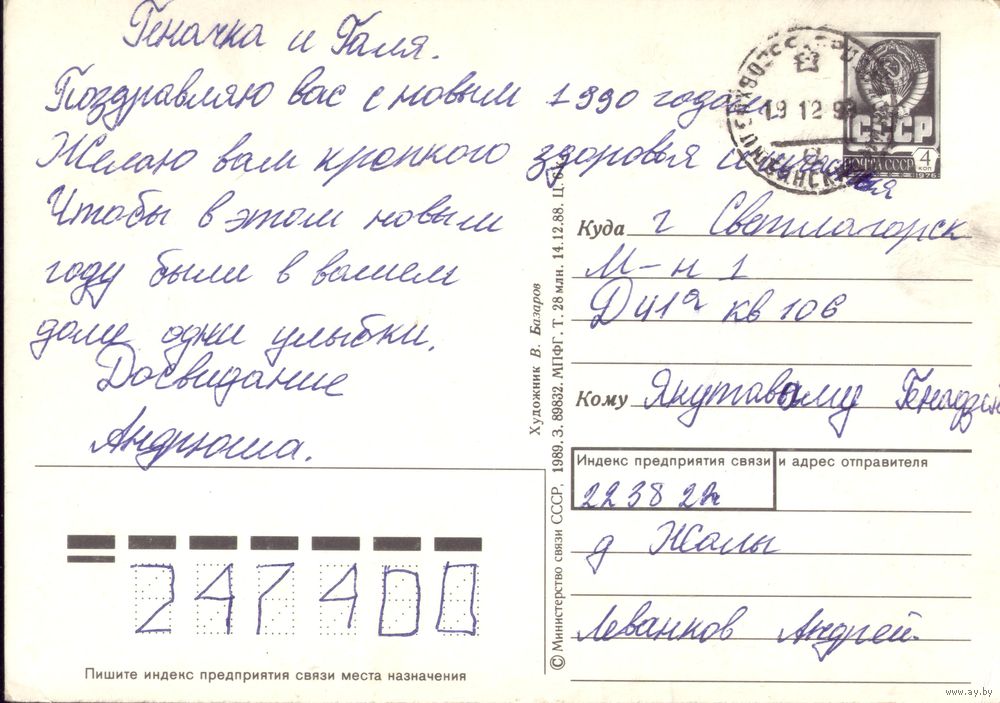 Геначка и Галя.
Поздравляю вас с новым 1990 годом
Желаю вам кропкого здоровья счастья
Чтобы в этом новым
году были в вашем
доме одни улыбки.
Досвидание
Андрюша.
СССР
ПОЧТА СССР 4 коп
1976
19 12 9
Куда г Светлагорск
М-н 1
Д 41а кв 106
Кому Якутавому Генадзію
Индекс предприятия связи и адрес отправителя
223822
д Жалы
Леванков Андрей.
Художник В. Базаров
© Министерство связи СССР, 1989. З. 89832. МПФГ. Т. 28 млн. 14.12.88. Ц. 6 к.
247400
Пишите индекс предприятия связи места назначения
www.ay.by